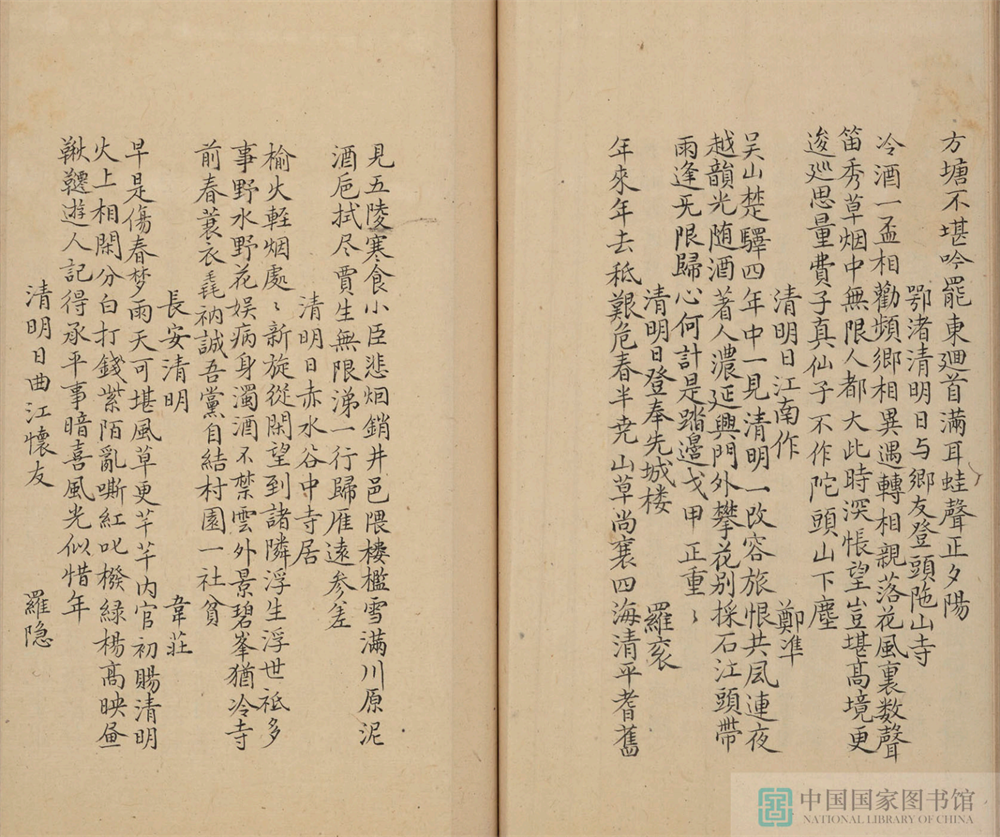 方塘不堪吟罷東廻首滿耳蛙聲正夕陽
鄂渚清明日与鄉友登頭陁山寺
冷酒一盃相勸頻鄉相異遇轉相親落花風裏数聲
笛秀草烟中無限人都大此時深悵望豈堪高境更
逡廵思量費子真仙子不作陀頭山下塵
清明日江南作 鄭準
吴山楚驛四年中一見清明一改容旅恨共風連夜
越韻光随酒著人濃延興門外攀花别採石江頭帶
雨逢无限歸心何計是踏邊戈甲正重〻
清明日登奉先城楼 羅衮
年來年去秖艱危春半尭山草尚衰四海清平耆舊
見五陵寒食小臣悲烟銷井邑隈樓檻雪满川原泥
酒巵拭尽賈生無限涕一行歸雁遠参差
清明日赤水谷中寺居
榆火輕烟處〻新旋從閑望到諸隣浮生浮世祗多
事野水野花娱病身濁酒不禁雲外景碧峯猶冷寺
前春蓑衣毳衲誠吾黨自結村園一社貧
長安清明 韋莊
早是傷春梦雨天可堪風草更芊芊内官初賜清明
火上相閑分白打錢紫陌亂嘶紅叱撥緑楊高映畫
鞦韆遊人記得承平事暗喜風光似惜年
清明日曲江懷友 羅隐
中国国家图书馆
NATIONAL LIBRARY OF CHINA